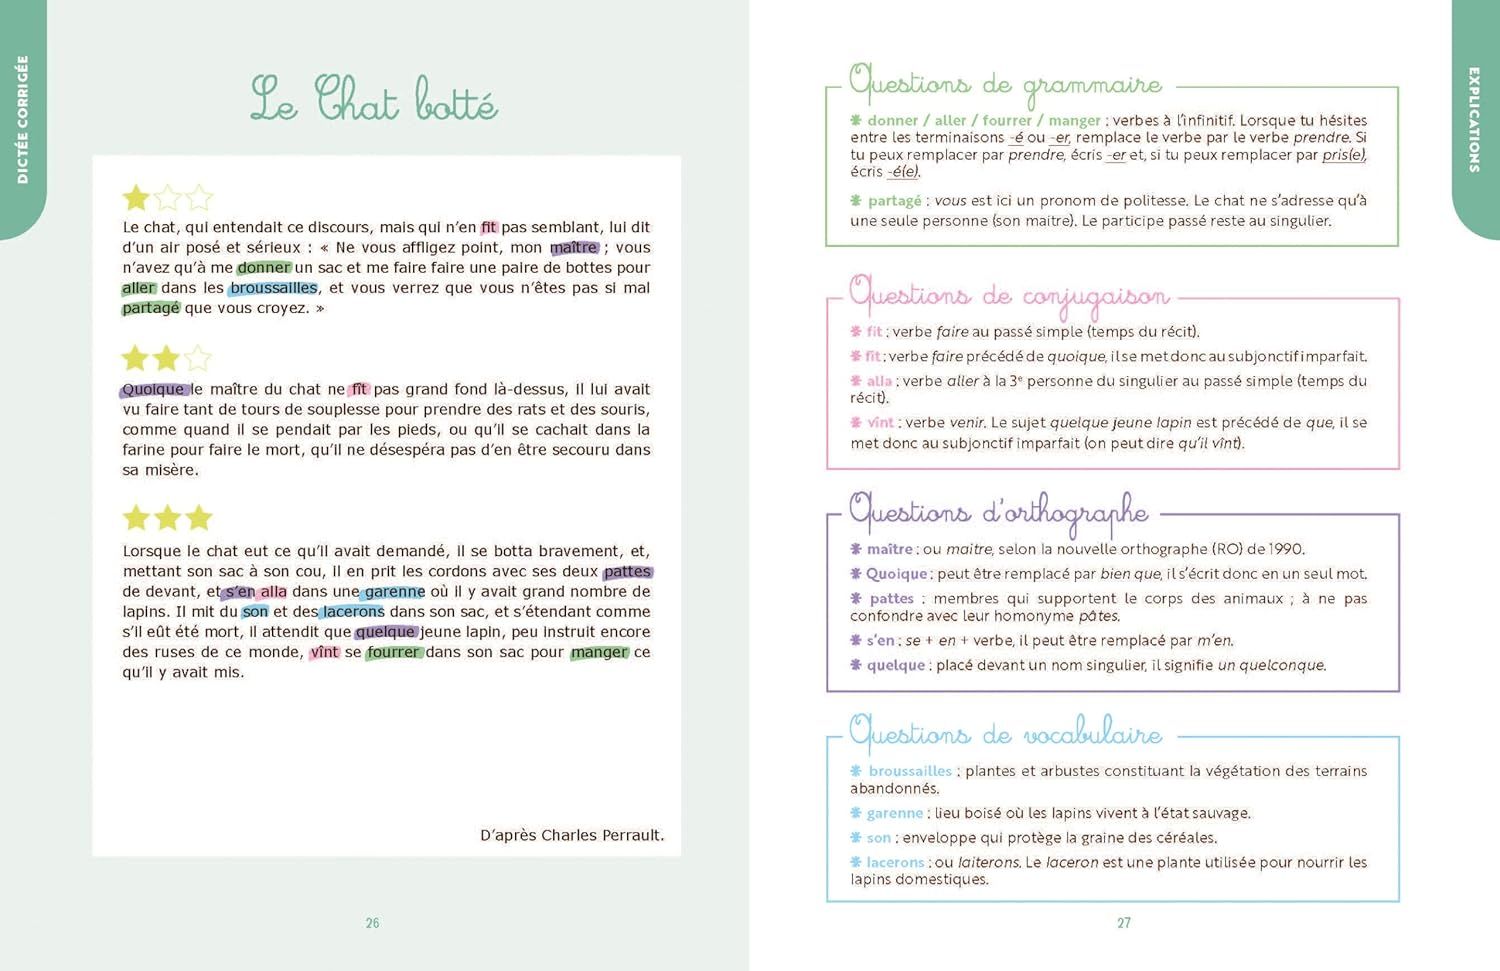 DICTÉE CORRIGÉE
Le Chat botté
Le chat, qui entendait ce discours, mais qui n’en fit pas semblant, lui dit
d’un air posé et sérieux : « Ne vous affligez point, mon maître ; vous
n’avez qu’à me donner un sac et me faire faire une paire de bottes pour
aller dans les broussailles, et vous verrez que vous n’êtes pas si mal
partagé que vous croyez. »
Quoique le maître du chat ne fît pas grand fond là-dessus, il lui avait
vu faire tant de tours de souplesse pour prendre des rats et des souris,
comme quand il se pendait par les pieds, ou qu’il se cachait dans la
farine pour faire le mort, qu’il ne désespéra pas d’en être secouru dans
sa misère.
Lorsque le chat eut ce qu’il avait demandé, il se botta bravement, et,
mettant son sac à son cou, il en prit les cordons avec ses deux pattes
de devant, et s’en alla dans une garenne où il y avait grand nombre de
lapins. Il mit du son et des lacerons dans son sac, et s’étendant comme
s’il eût été mort, il attendit que quelque jeune lapin, peu instruit encore
des ruses de ce monde, vînt se fourrer dans son sac pour manger ce
qu’il y avait mis.
D’après Charles Perrault.
26
EXPLICATIONS
Questions de grammaire
* donner / aller / fourrer / manger : verbes à l’infinitif. Lorsque tu hésites
entre les terminaisons -é ou -er, remplace le verbe par le verbe prendre. Si
tu peux remplacer par prendre, écris -er et, si tu peux remplacer par pris(e),
écris -é(e).
* partagé : vous est ici un pronom de politesse. Le chat ne s’adresse qu’à
une seule personne (son maitre). Le participe passé reste au singulier.
Questions de conjugaison
* fit : verbe faire au passé simple (temps du récit).
* fît : verbe faire précédé de quoique, il se met donc au subjonctif imparfait.
* alla : verbe aller à la 3e personne du singulier au passé simple (temps du
récit).
* vînt : verbe venir. Le sujet quelque jeune lapin est précédé de que, il se
met donc au subjonctif imparfait (on peut dire qu’il vînt).
Questions d’orthographe
* maître : ou maitre, selon la nouvelle orthographe (RO) de 1990.
* Quoique : peut être remplacé par bien que, il s’écrit donc en un seul mot.
* pattes : membres qui supportent le corps des animaux ; à ne pas
confondre avec leur homonyme pâtes.
* s’en : se + en + verbe, il peut être remplacé par m’en.
* quelque : placé devant un nom singulier, il signifie un quelconque.
Questions de vocabulaire
* broussailles : plantes et arbustes constituant la végétation des terrains
abandonnés.
* garenne : lieu boisé où les lapins vivent à l’état sauvage.
* son : enveloppe qui protège la graine des céréales.
* lacerons : ou laiterons. Le laceron est une plante utilisée pour nourrir les
lapins domestiques.
27